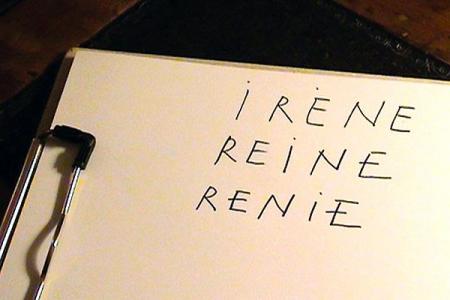 iRÈNE
REiNE
RENiE